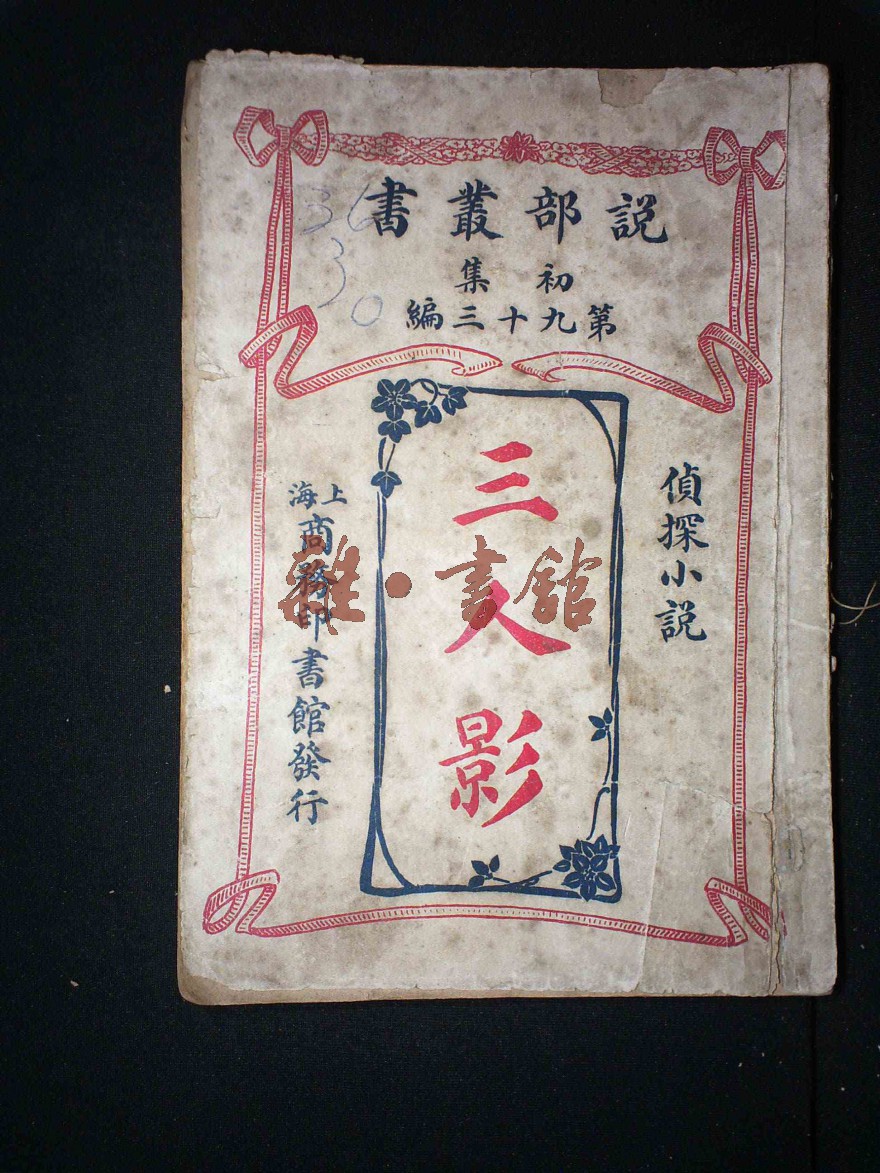 説部叢書
初集
第九十三編
偵探小説
三人影
上海
商務印書館發行
雜·書館
36
30